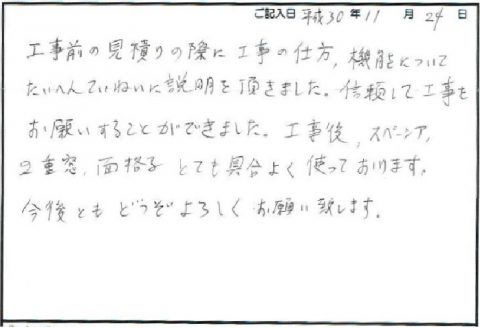 ご記入日 平成30年11月24日
工事前の見積りの際に工事の仕方、機能について
たいへんていねいに説明を頂きました。信頼して工事を
お願いすることができました。工事後、スペーシア、
2重窓、面格子とても具合よく使っております。
今後ともどうぞよろしくお願い致します。